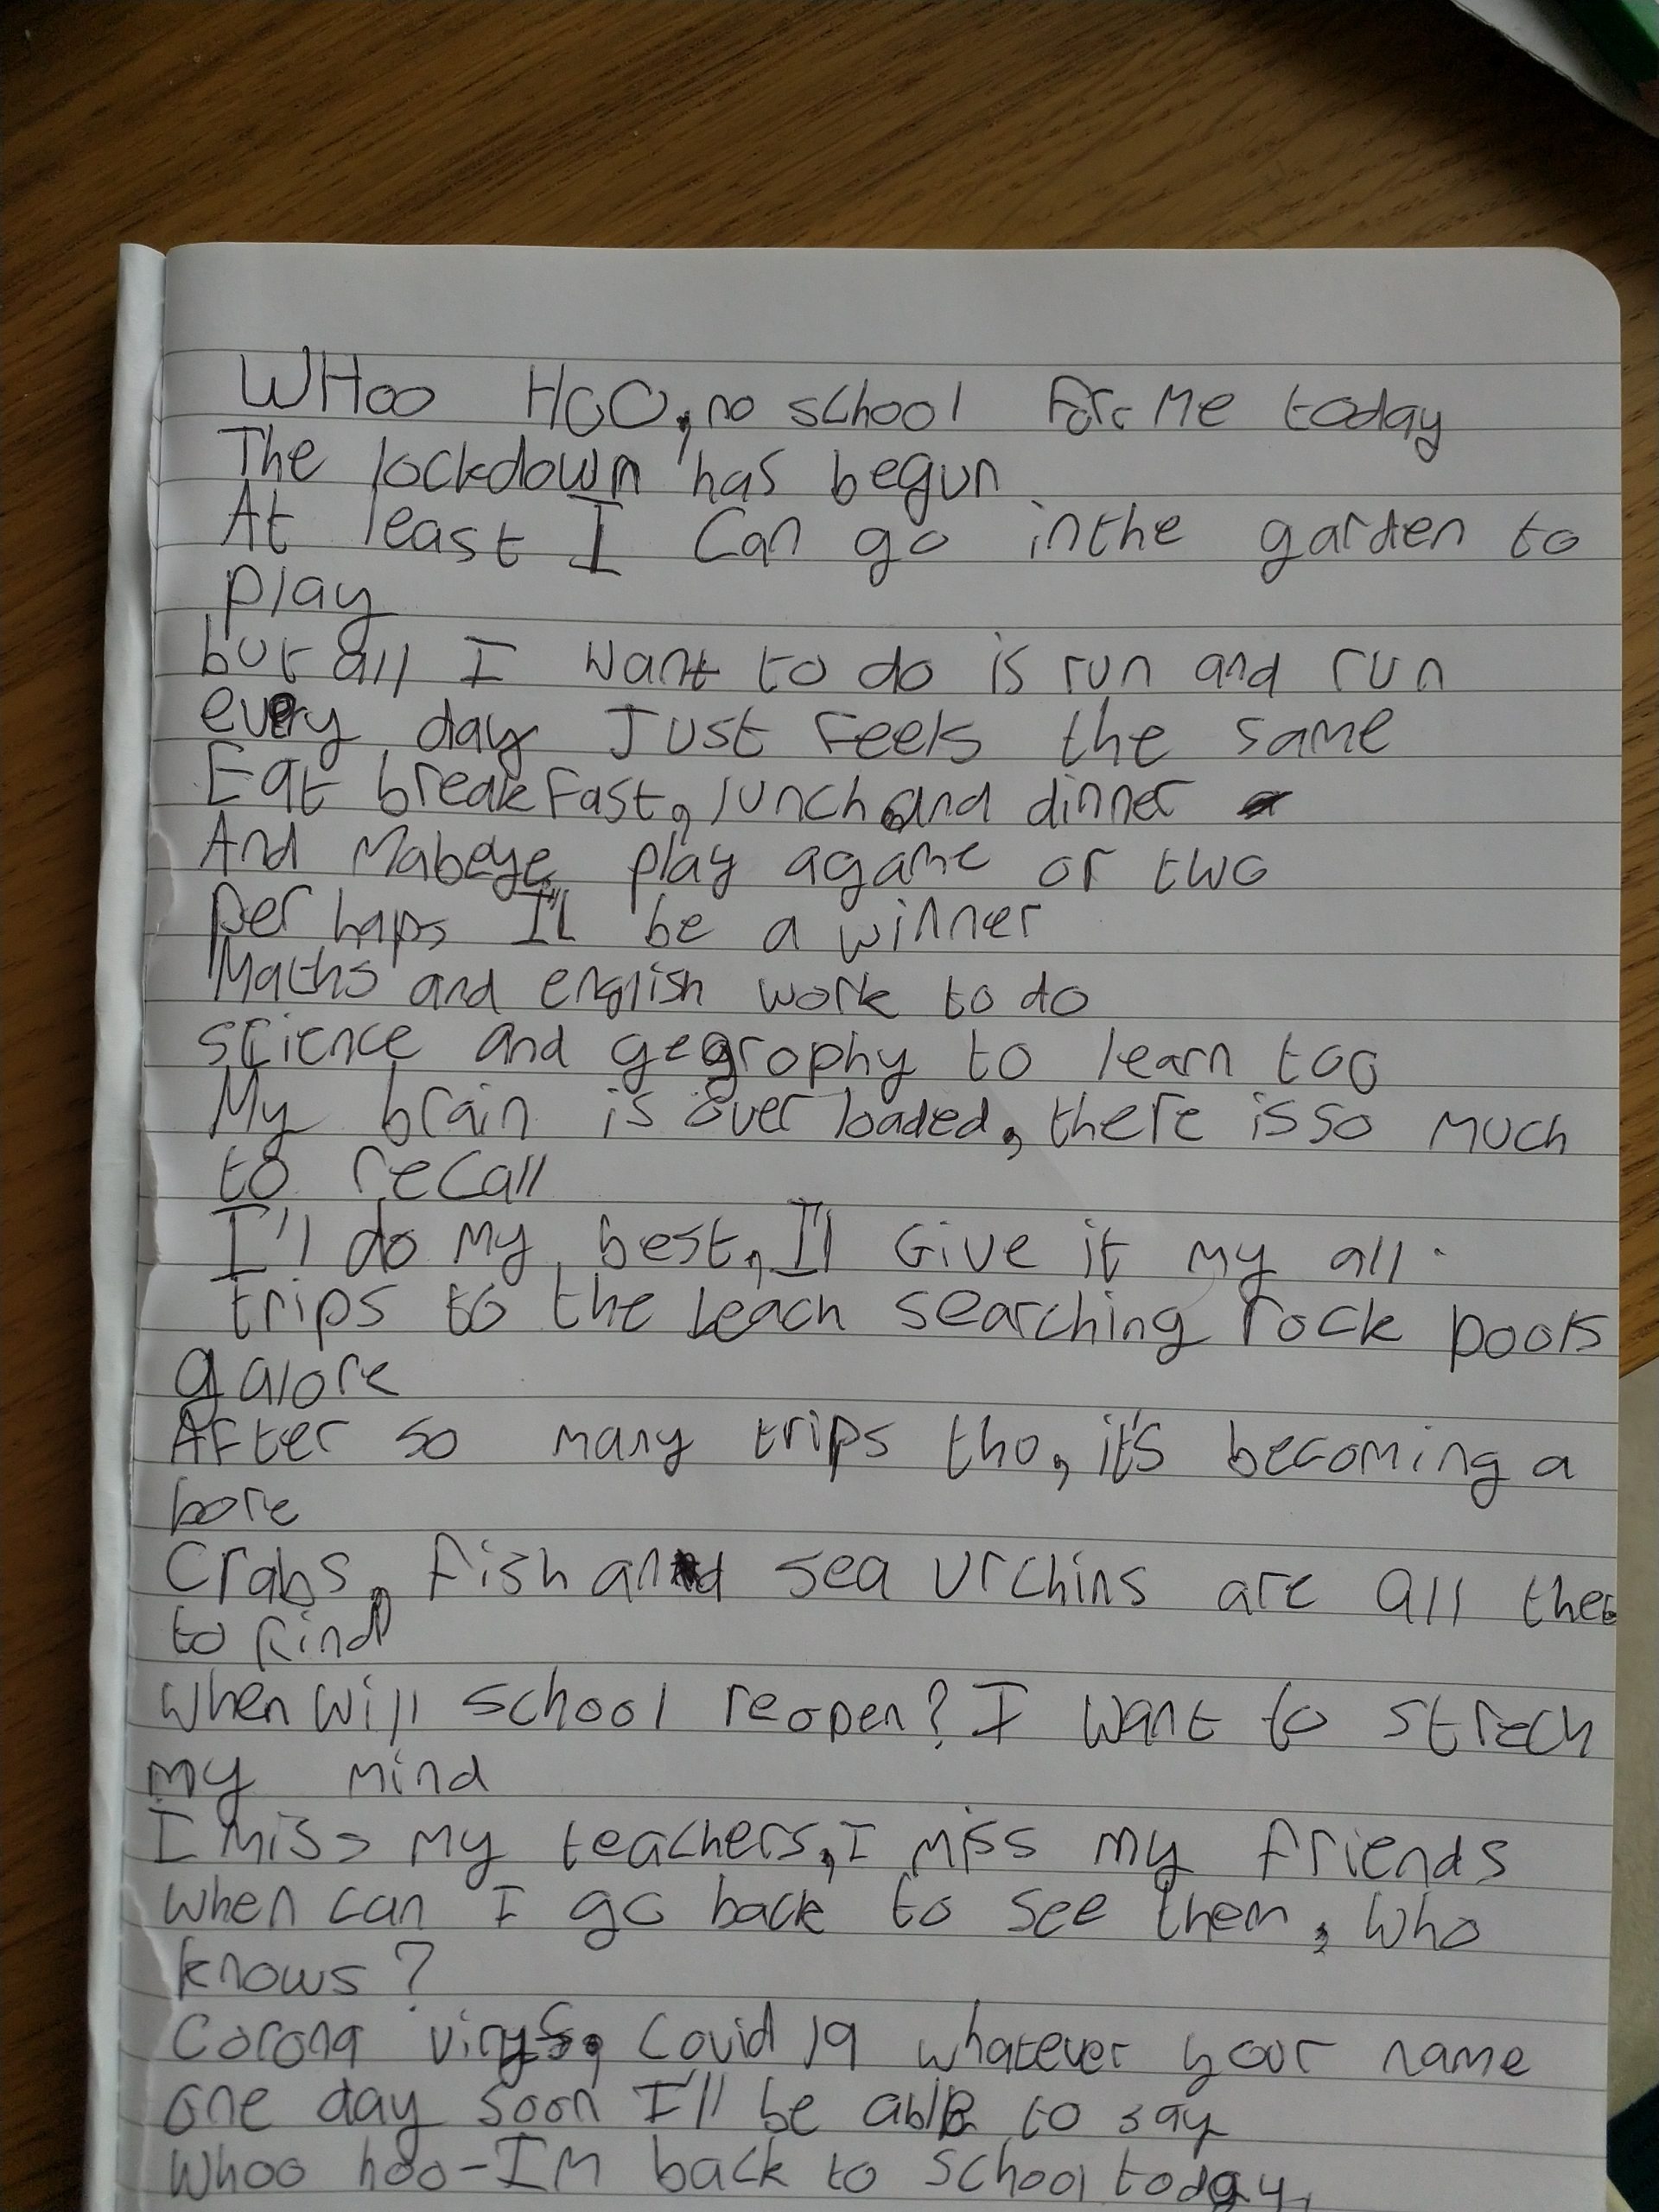 WHoo HOO, no school for me today
The lockdown has begun
At least I can go inthe garden to
play
but all I want to do is run and run
every day Just feels the same
Eat breakfast, lunch and dinner
And Mabeye play a game or two
perhaps I'll be a winner
Maths and english work to do
science and gegrophy to learn too
My brain is over loaded, there is so much
to recall
I'll do my best, I'll Give it my all.
trips to the beach searching rock pools
galore
After so many trips tho, it's becoming a
bore
Crabs, fish and sea urchins are all
to find
When will school reopen? I want to strech
my mind
I miss my teachers, I miss my friends
When can I go back to see them, who
knows?
Corona virus, Covid 19 whatever your name
one day soon I'll be able to say
Whoo hoo-IM back to school today.